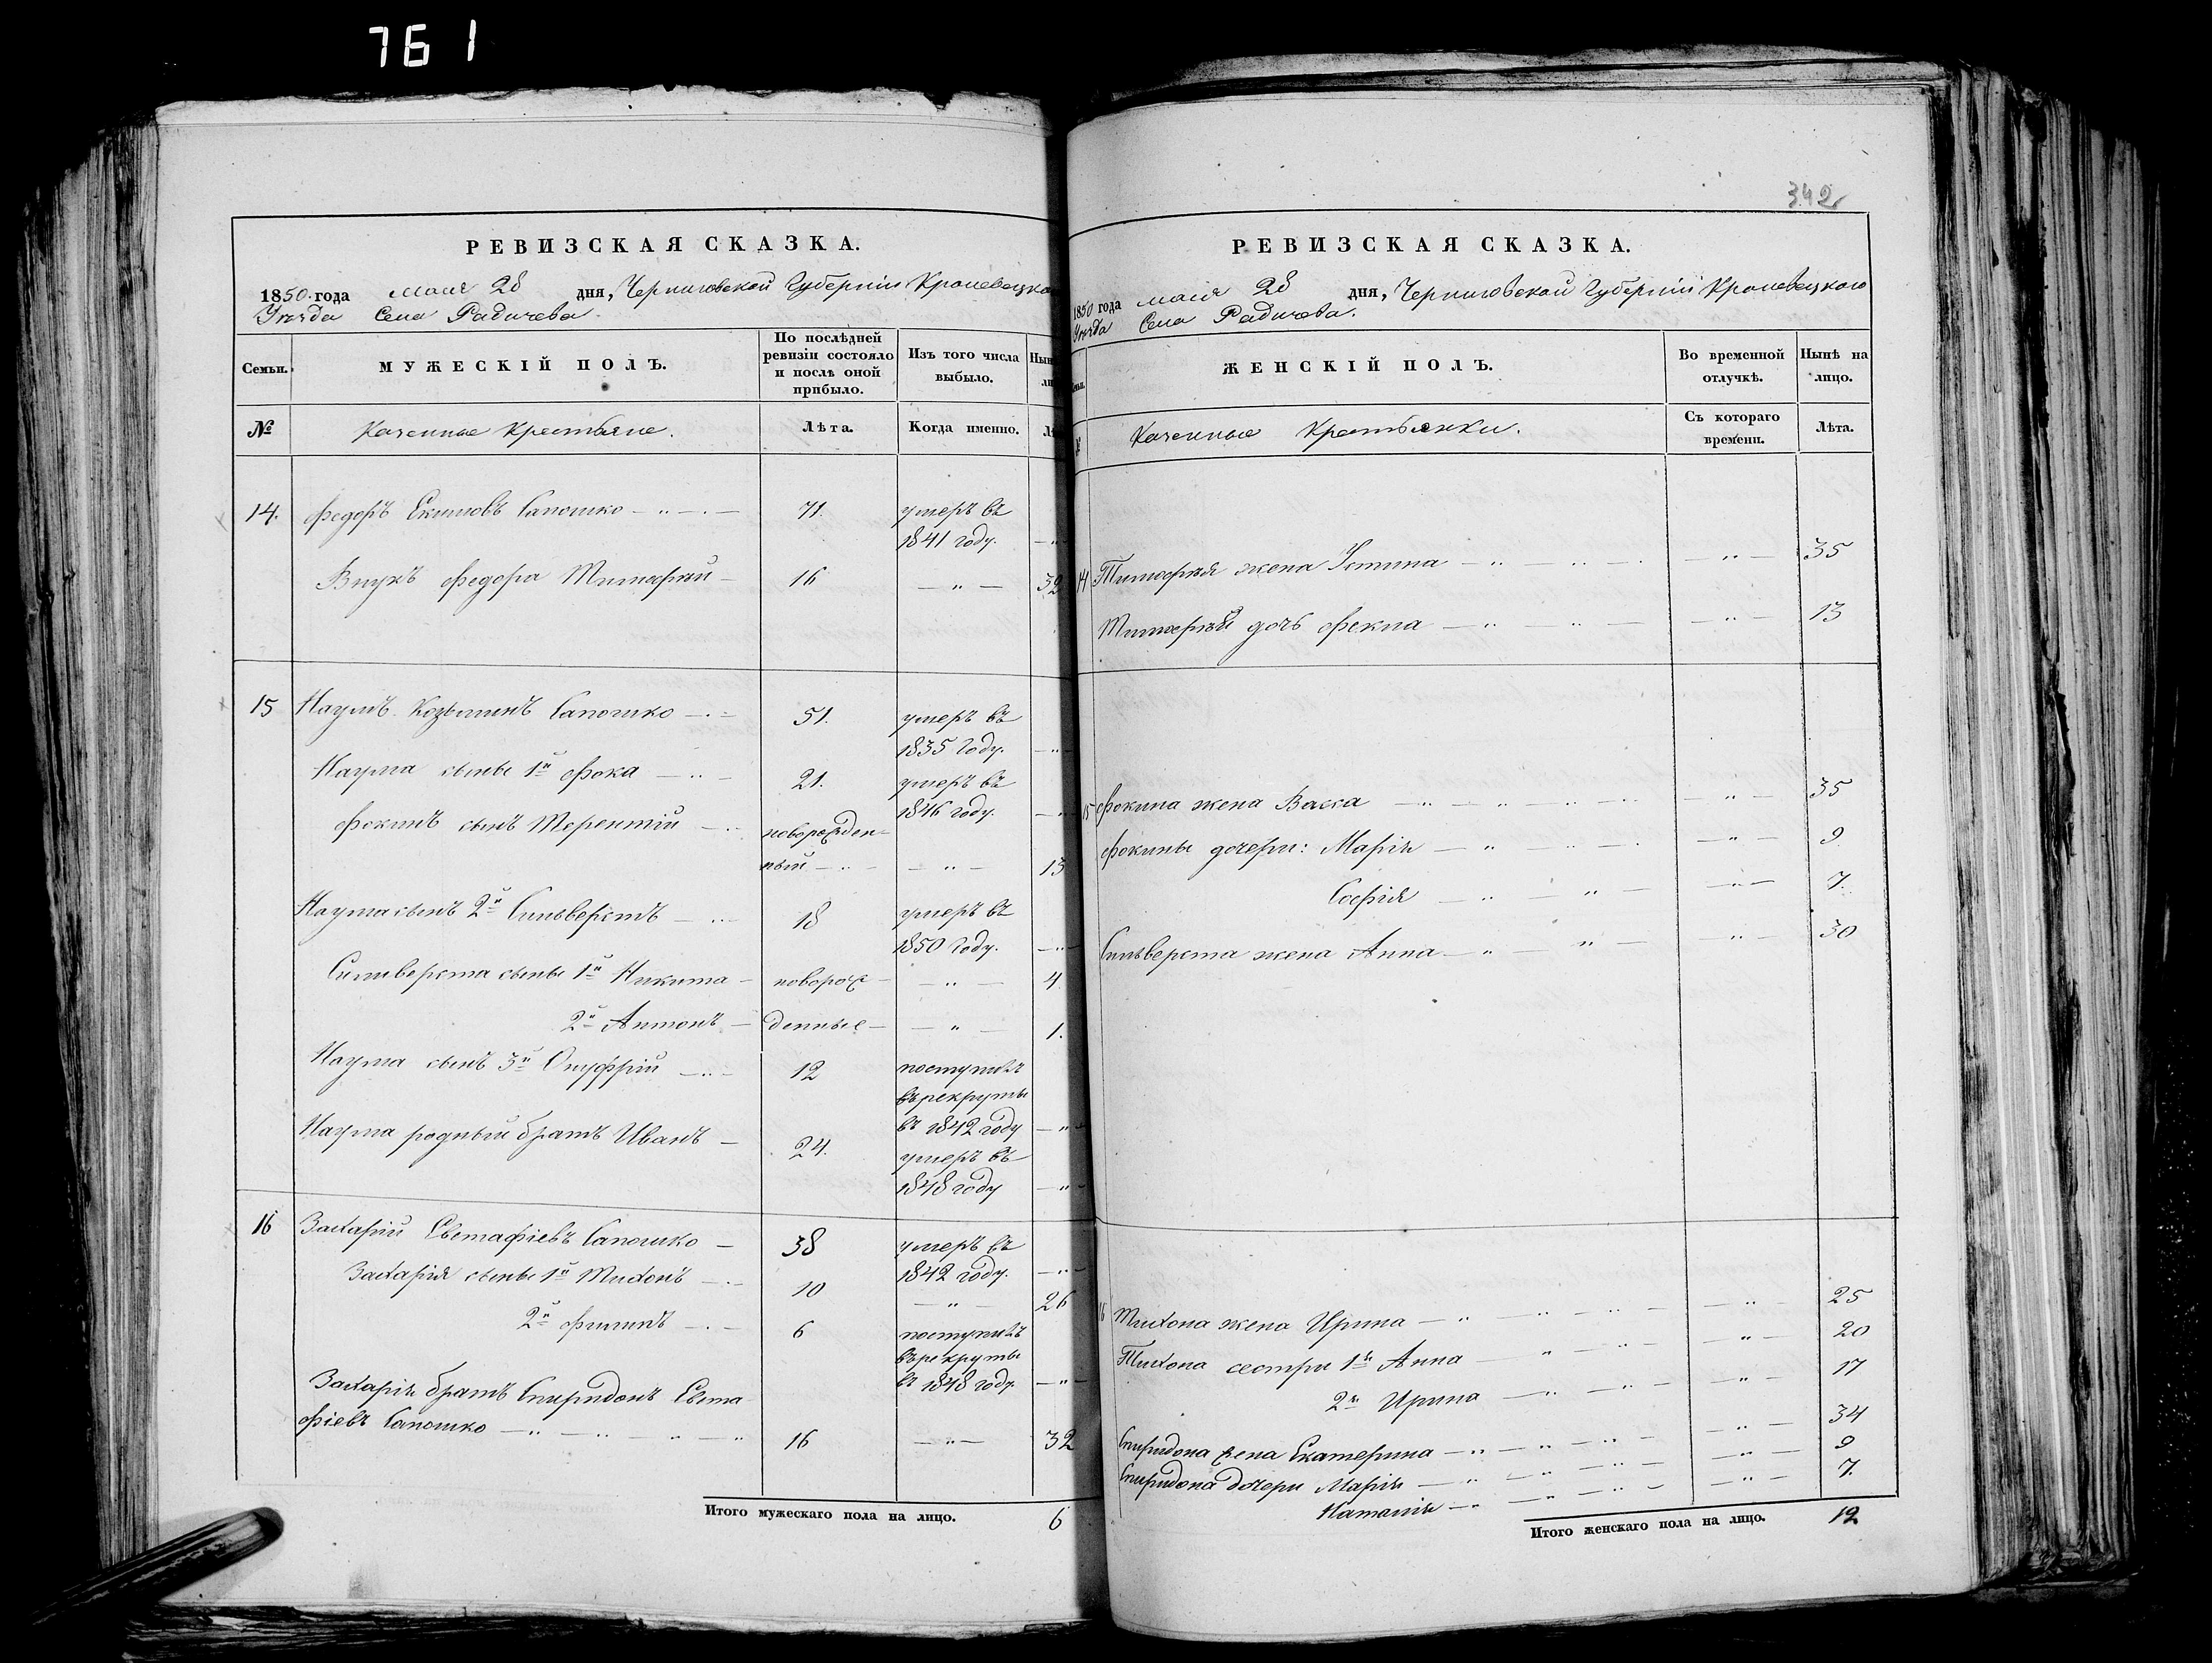 761
342
РЕВИЗСКАЯ СКАЗКА.
1850 года маия 28 дня, Черниговской Губернии Кролевецко
Уѣзда Села Радичева.
Семьи.
МУЖЕСКІЙ ПОЛЪ.
По послѣдней
ревизіи состояло
и послѣ оной
прибыло.
Изъ того числа
выбыло.
Нын
ли
№
Казенные Крестьяне.
Лѣта.
Когда именно.
Лѣ
14. Федоръ Екимовъ Сапошко 71. умеръ въ
1841 году.
Внукъ Федора Тимофѣй 16 32
15 Наумъ Козьминъ Сапошко 51. умеръ въ
1835 году.
Наума сыны 1й Фока 21. умеръ въ
1846 году.
Фокинъ сынъ Терентій новорожден-
ный 13
Наума сынъ 2й Сильверстъ 18 умеръ въ
1850 году.
Сильверста сыны 1й Никита новорож- 4
2й Антонъ денные 1.
Наума сынъ 3й Онуфрій 12 поступилъ
въ рекруты
въ 1842 году
Наума родный братъ Иванъ 24. умеръ въ
1848 году
16 Захарій Евстафіевъ Сапошко 38 умеръ въ
1842 году.
Захарія сыны 1й Тихонъ 10 26
2й Филипъ 6 поступилъ
въ рекруты
въ 1848 году
Захарія братъ Спиридонъ Евста
фіевъ Сапошко 16 32
Итого мужескаго пола на лицо. 6
РЕВИЗСКАЯ СКАЗКА.
1850 года маія 28 дня, Черниговской Губерніи Кролевецкого
Уѣзда Села Радичева.
ЖЕНСКІЙ ПОЛЪ.
Во временной
отлучкѣ.
Нынѣ на
лицо.
Казенные Крестьянки.
Съ котораго
времени.
Лѣта.
14 Тимофѣя жена Устина 35
Тимофѣй дочь Фекла 13
15 Фокина жена Васса 35
Фокины дочери: Марія 9
Софія 7.
Сильверста жена Анна 30
16 Тихона жена Ирина 25
Тихона сестри 1я Анна 20
2я Ирина 17
Спиридона жена Екатерина 34
Спиридона дочери Марія 9
Наталія 7.
Итого женскаго пола на лицо. 12